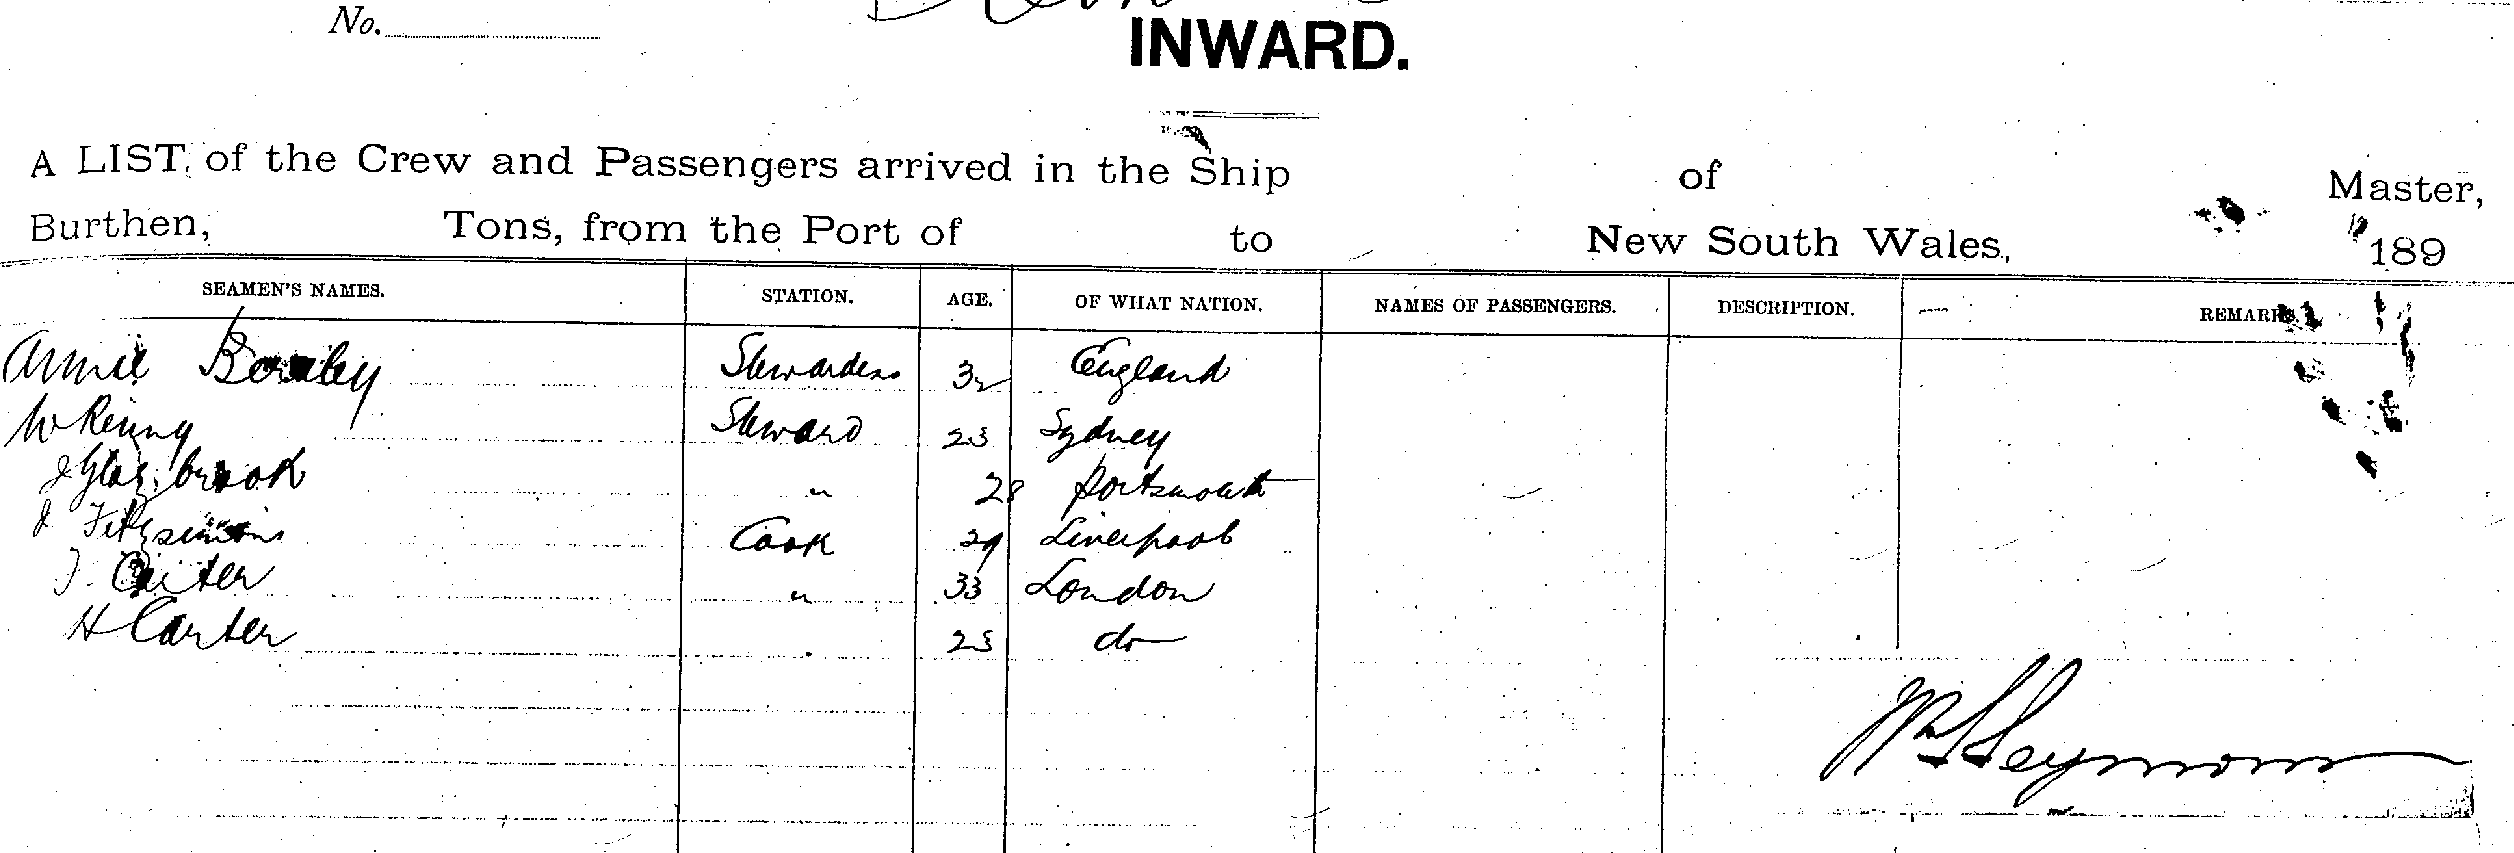 No.
INWARD.
A LIST of the Crew and Passengers arrived in the Ship of Master,
Burthen, Tons, from the Port of to New South Wales, 189
SEAMEN'S NAMES. STATION. AGE. OF WHAT NATION. NAMES OF PASSENGERS. DESCRIPTION. REMARKS.
Annie Stewardess 32 England
W Steward 23 Sydney
J Glazebrook " 28 Portsmouth
J Fitzsimons Cook 29 Liverpool
J. " 33 London
H Carter 23 do
Seymour